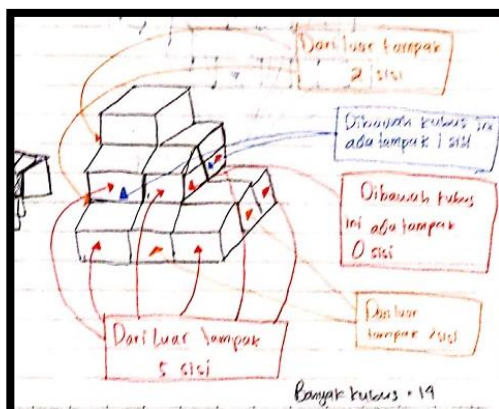 Dari luar tampak
2 sisi
Dibawah kubus ini
ada tampak 1 sisi
Dibawah kubus
ini ada tampak
0 sisi
Dari luar
tampak 2 sisi
Dari luar tampak
5 sisi
Banyak kubus = 19